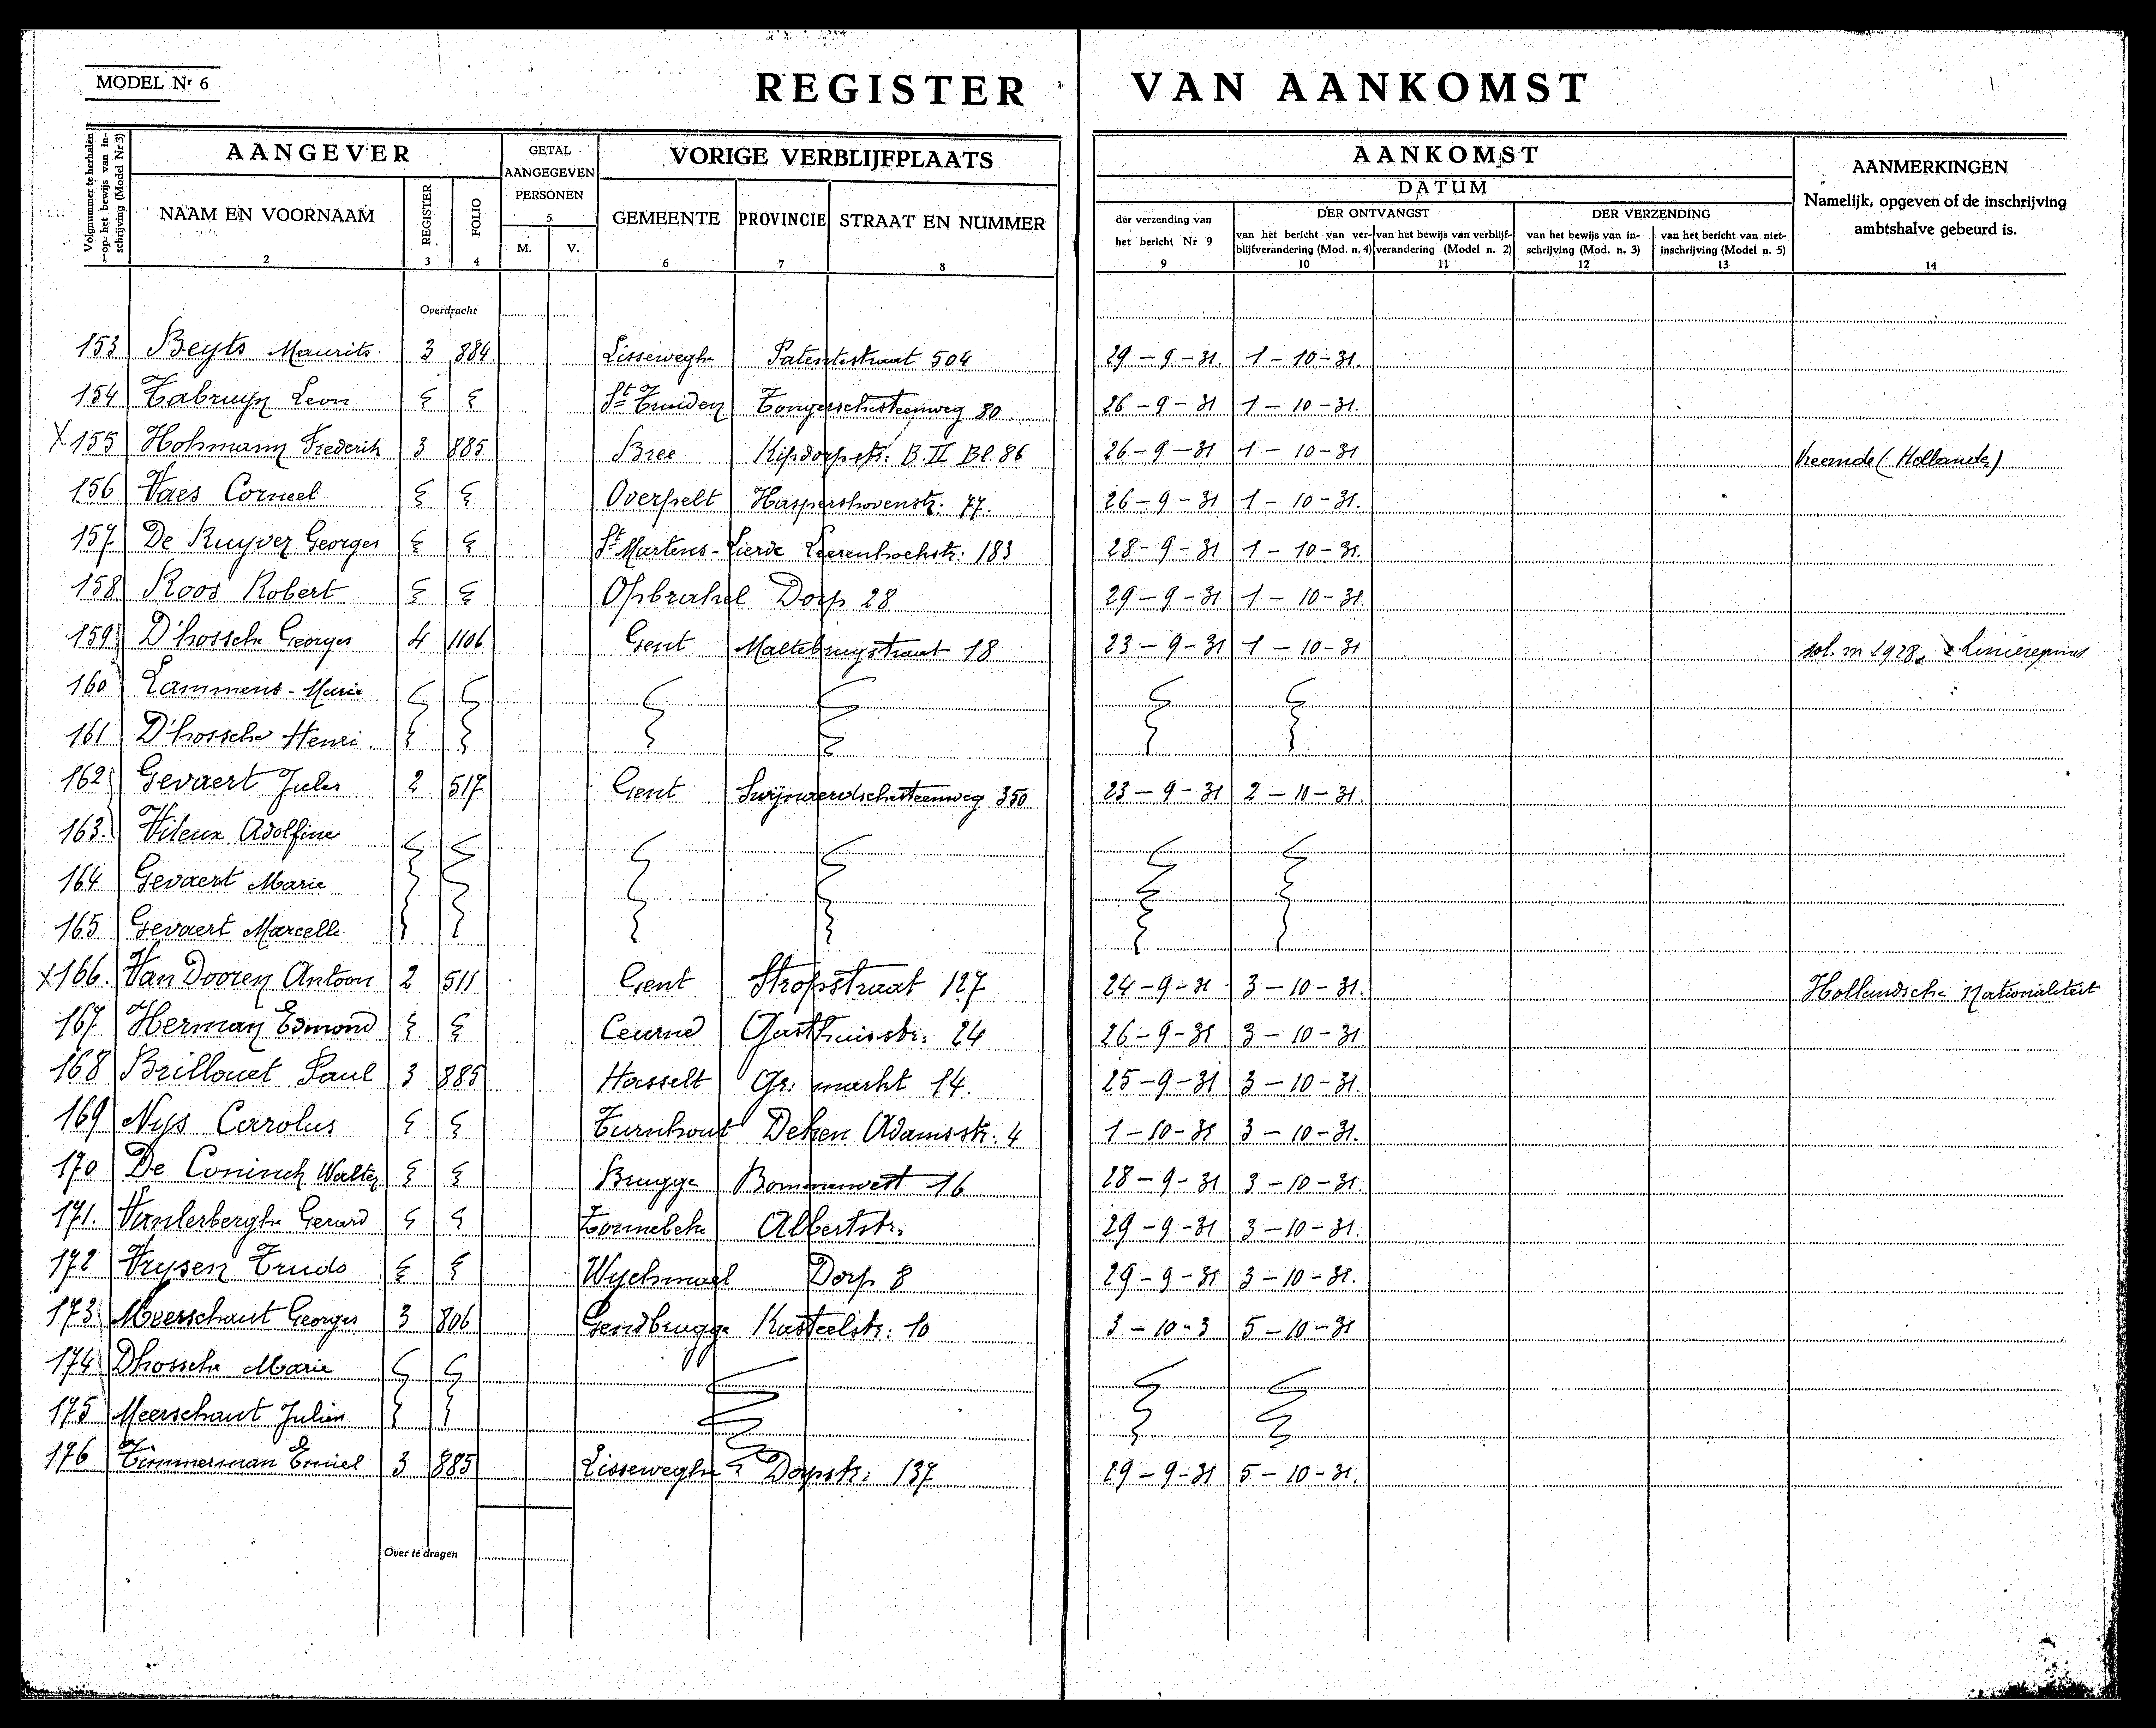 MODEL Nr 6
REGISTER VAN AANKOMST
Volgnummer te herhalen op het bewijs van inschrijving (Model Nr 3)
AANGEVER
GETAL AANGEGEVEN PERSONEN
5
VORIGE VERBLIJFPLAATS
AANKOMST
DATUM
AANMERKINGEN
Namelijk, opgeven of de inschrijving
ambtshalve gebeurd is.
NAAM EN VOORNAAM REGISTER FOLIO M. V. GEMEENTE PROVINCIE STRAAT EN NUMMER
der verzending van
het bericht Nr 9
DER ONTVANGST
van het bericht van ver-
blijfverandering (Mod. n. 4)
van het bewijs van verblijf-
verandering (Model n. 2)
DER VERZENDING
van het bewijs van in-
schrijving (Mod. n. 3)
van het bericht van niet-
inschrijving (Model n. 5)
2 3 4 6 7 8 9 10 11 12 13 14
Overdracht
153 Beyts Maurits 3 884 Lisseweghe Patentestraat 504 29-9-31. 1-10-31.
154 Tabruyn Leon St Truiden Tongerschesteenweg 80 26-9-31 1-10-31.
X 155 Hohmann Frederik 3 885 Bree Kipdorpstr. B.II Bl. 86 26-9-31 1-10-31 Vreemde (Hollander)
156 Vaes Corneel Overpelt Haspershovenstr. 77. 26-9-31 1-10-31.
157 De Ruyver Georges St Martens-Lierde 183 28-9-31 1-10-31.
158 Roos Robert Opbrakel Dorp 28 29-9-31 1-10-31.
159 D'hossche Georges 4 1106 Gent Maltebrugstraat 18 23-9-31 1-10-31 sol. m 1928
160 Lammens-Marie
161 D'hossche Henri
162 Gevaert Jules 2 517 Gent Swijnaerdschesteenweg 350 23-9-31 2-10-31.
163. Adolfine
164 Gevaert Marie
165 Gevaert Marcelle
X 166. Van Dooren Antoon 2 511 Gent Stropstraat 127 24-9-31 3-10-31. Hollandsche Nationaliteit
167 Herman Edmond Ceurne Gasthuisstr. 24 26-9-31 3-10-31
168 Brillouet Paul 3 885 Hasselt Gr. markt 14. 25-9-31 3-10-31.
169 Nys Carolus Turnhout Deken Adamsstr. 4 1-10-31 3-10-31.
170 De Coninck Walter Brugge Bommenvest 16 28-9-31 3-10-31.
171. Vanlerberghe Gerard Zonnebeke Albertstr. 29-9-31 3-10-31.
172 Vrysen Trudo Wychmael Dorp 8 29-9-31 3-10-31.
173 Meerschaut Georges 3 806 Gendbrugge Kasteelstr. 10 3-10-3 5-10-31
174 Dhossche Marie
175 Meerschaut Julien
176 Timmerman Emiel 3 885 Lisseweghe Dorpstr. 137 29-9-31 5-10-31.
Over te dragen